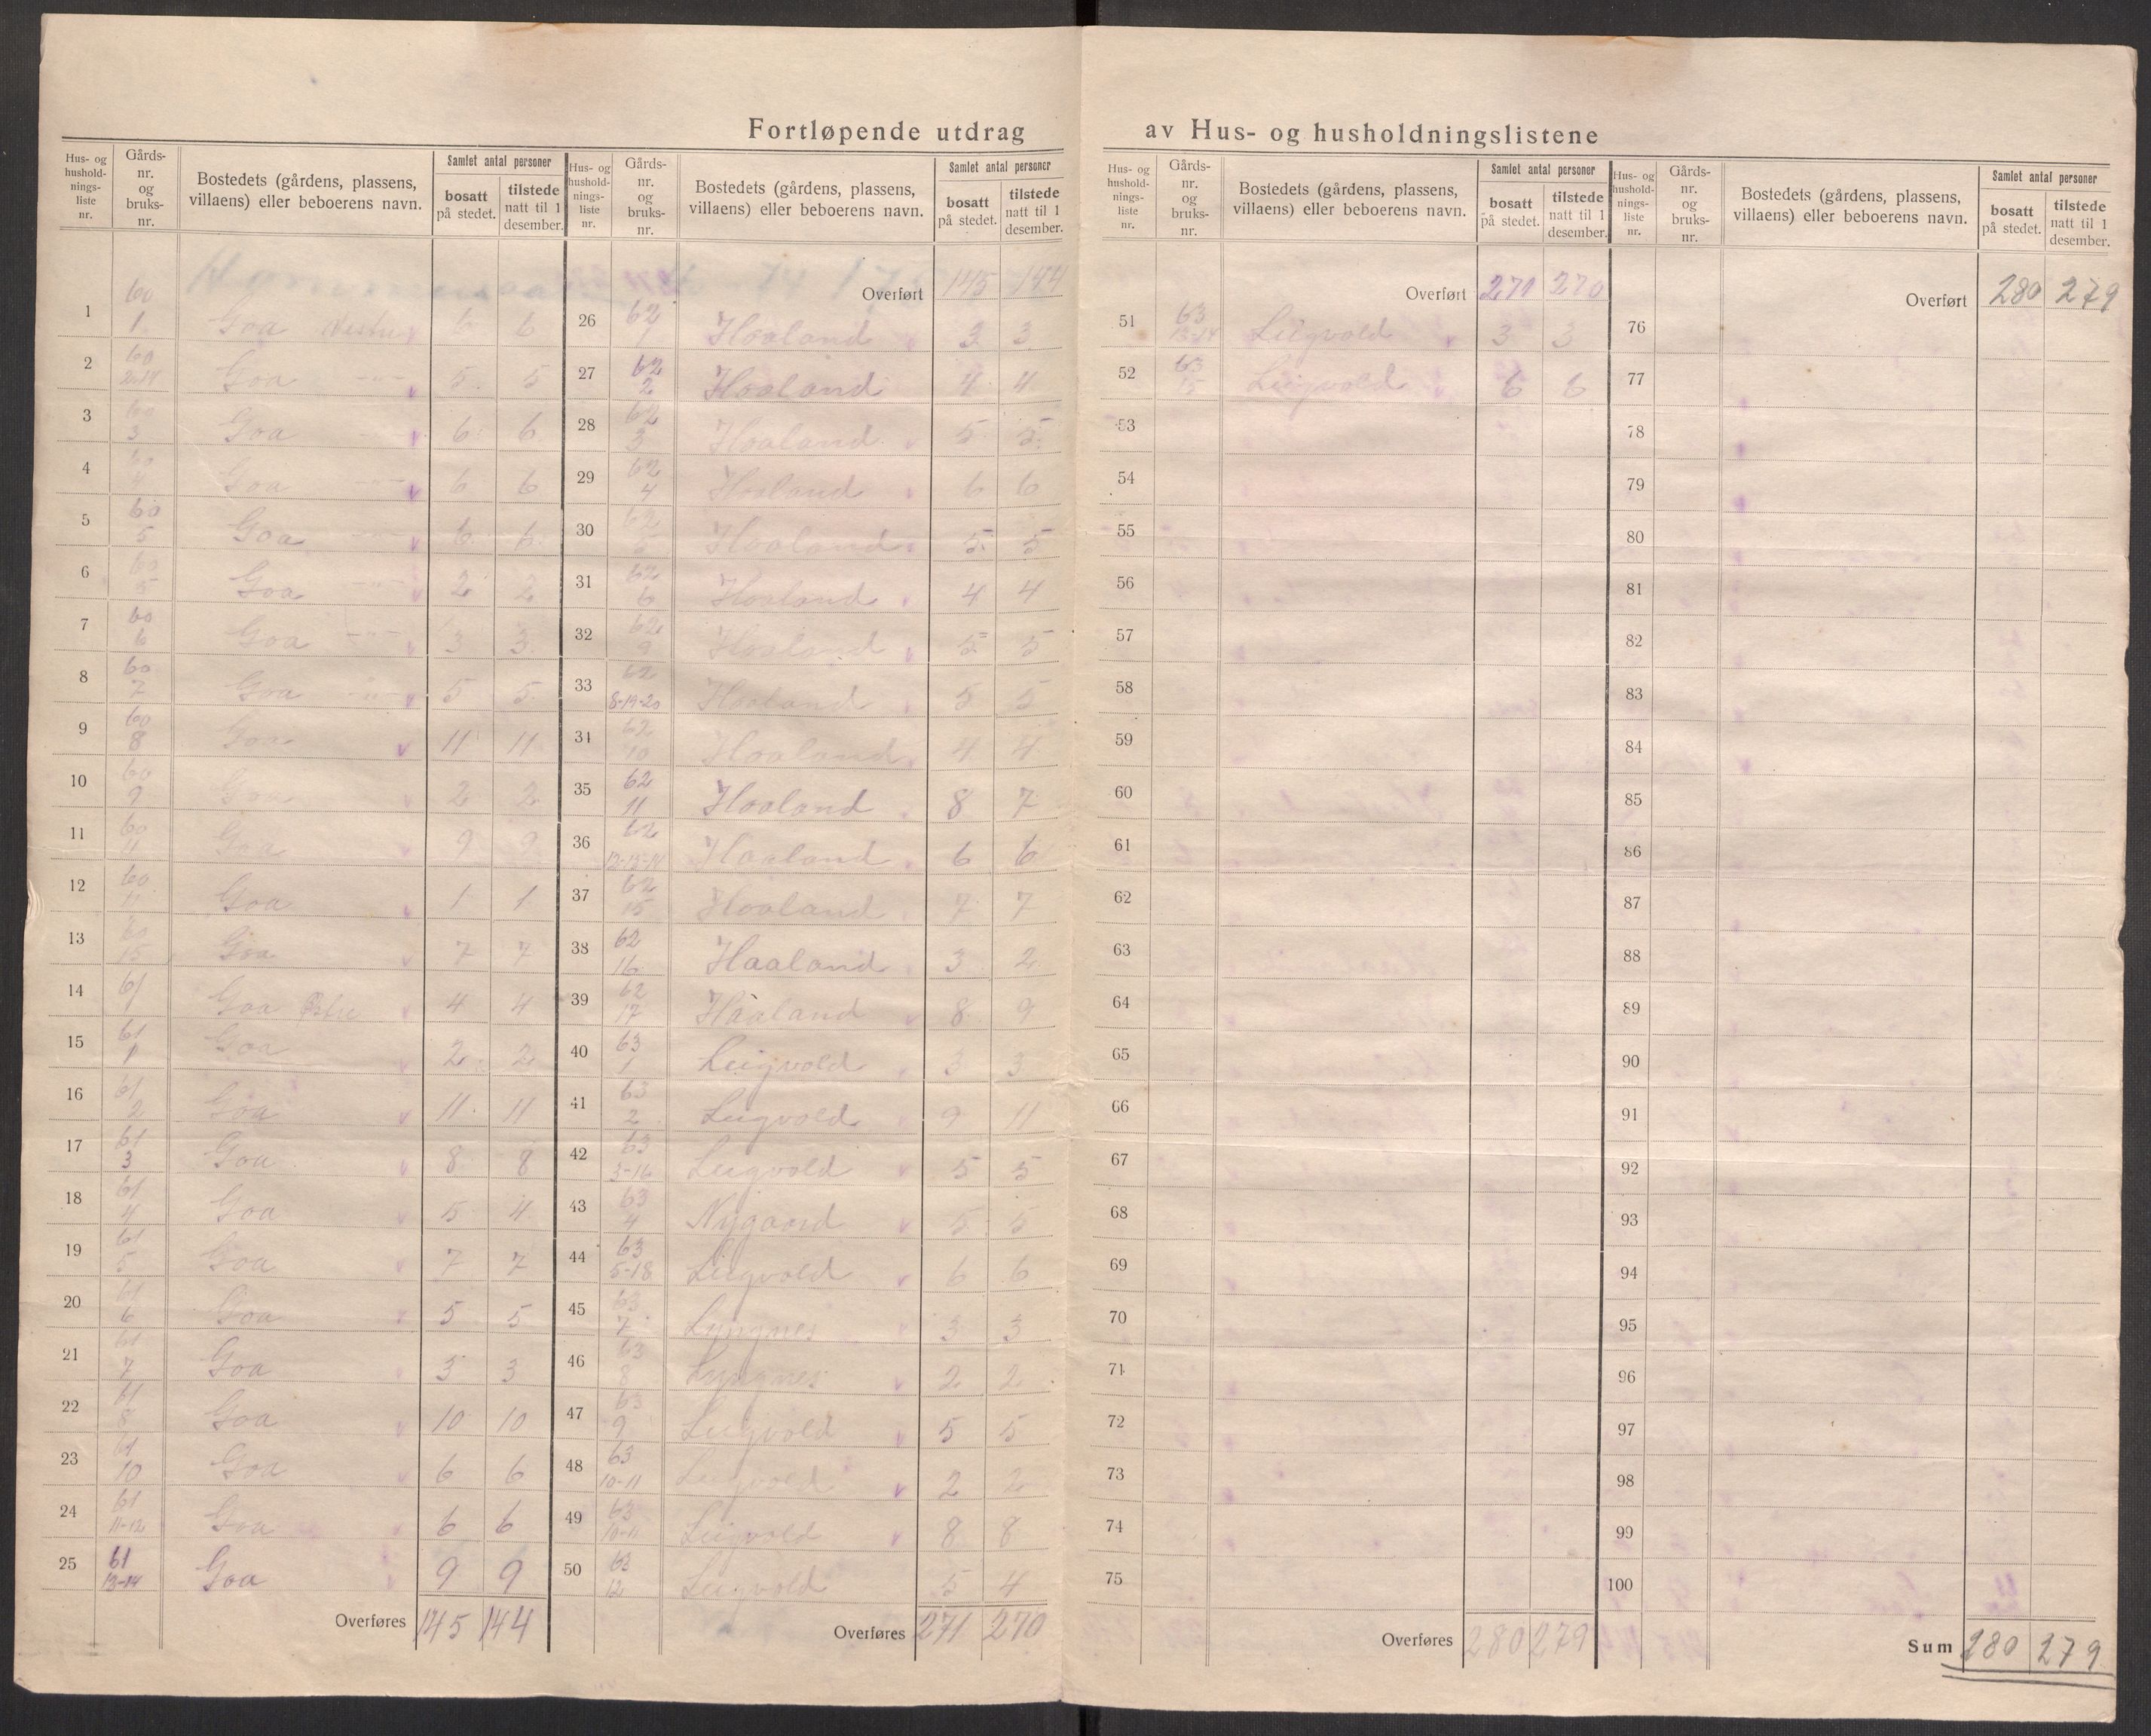 Fortløpende utdrag av Hus- og husholdningslistene
Hus- og hushold-nings-liste nr. Gårds-nr. og bruks-nr. Bostedets (gårdens, plassens, villaens) eller beboerens navn. Samlet antal personer bosatt på stedet. tilstede natt til 1 desember.
1 60 1 Goa Vestre 6 6
2 60 2-14 Goa -"- 5 5
3 60 3 Goa 6 6
4 60 Goa -"- 6 6
5 60 5 Goa -"- 6 6
6 60 5 Goa -"- 2 2
7 60 6 Goa -"- 3 3
8 60 7 Goa -"- 5 5
9 60 8 Goa 11 11
10 60 9 Goa 2 2
11 60 11 Goa 9 9
12 60 11 Goa 1 1
13 60 15 Goa 7 7
14 61 1 Goa Østre 4 4
15 61 1 Goa 2 2
16 61 2 Goa 11 11
17 61 3 Goa 8 8
18 61 4 Goa 5 4
19 61 5 Goa 7 7
20 61 6 Goa 5 5
21 61 7 Goa 3 3
22 61 8 Goa 10 10
23 61 10 Goa 6 6
24 61 11-12 Goa 6 6
25 61 13-14 Goa 9 9
Overføres 145 144
Hus- og hushold-nings-liste nr. Gårds-nr. og bruks-nr. Bostedets (gårdens, plassens, villaens) eller beboerens navn. Samlet antal personer bosatt på stedet. tilstede natt til 1 desember.
Overført 145 144
26 62 1 Haaland 3 3
27 62 2 Haaland 4 4
28 62 3 Haaland 5 5
29 62 4 Haaland 6 6
30 62 5 Haaland 5 5
31 62 6 Haaland 4 4
32 62 9 Haaland 5 5
33 62 8-19-20 Haaland 5 5
34 62 10 Haaland 4 4
35 62 11 Haaland 8 7
36 62 12-13-14 Haaland 6 6
37 62 15 Haaland 7 7
38 62 16 Haaland 3 2
39 62 17 Haaland 8 9
40 63 1 Leigvold 3 3
41 63 2 Leigvold 9 11
42 63 3-16 Leigvold 5 5
43 63 4 Nygaard 5 5
44 63 5-18 Leigvold 6 6
45 63 7 Lyngnes 3 3
46 63 8 Lyngnes 2 2
47 63 9 Leigvold 5 5
48 63 10-11 Leigvold 2 2
49 63 10-11 Leigvold 8 8
50 63 12 Leigvold 5 4
Overføres 271 270
Hus- og hushold-nings-liste nr. Gårds-nr. og bruks-nr. Bostedets (gårdens, plassens, villaens) eller beboerens navn. Samlet antal personer bosatt på stedet. tilstede natt til 1 desember.
Overført 271 270
51 63 13-14 Leigvold 3 3
52 63 15 Leigvold 6 6
53
54
55
56
57
58
59
60
61
62
63
64
65
66
67
68
69
70
71
72
73
74
75
Overføres 280 279
Hus- og hushold-nings-liste nr. Gårds-nr. og bruks-nr. Bostedets (gårdens, plassens, villaens) eller beboerens navn. Samlet antal personer bosatt på stedet. tilstede natt til 1 desember.
Overført 280 279
76
77
78
79
80
81
82
83
84
85
86
87
88
89
90
91
92
93
94
95
96
97
98
99
100
Sum 280 279